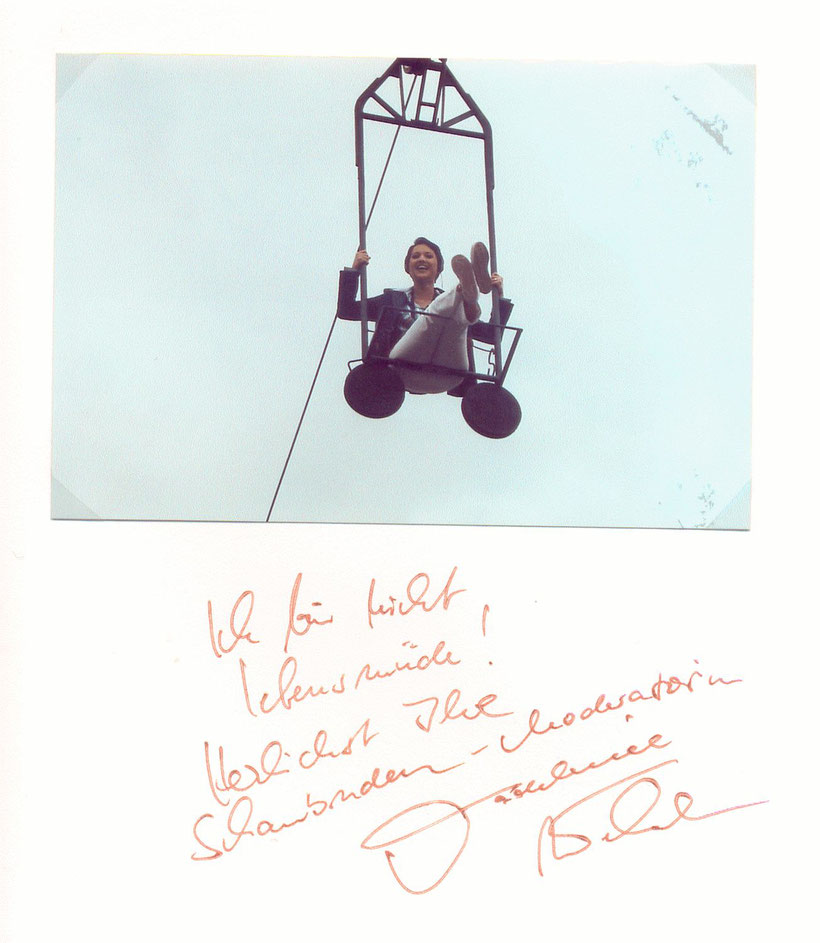 Ich bin nicht
lebensmüde!
Herzlichst Ihre
Schaubuden-Moderatorin